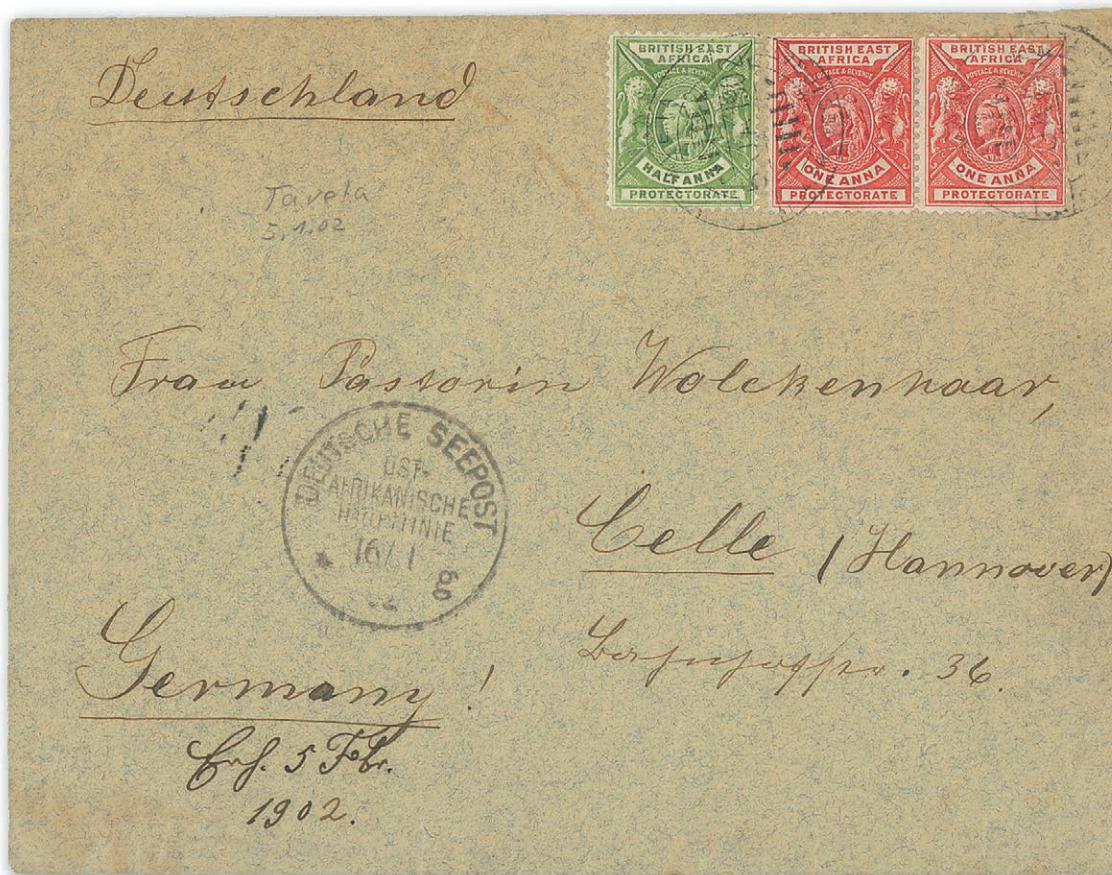 Deutschland
BRITISH EAST AFRICA
POSTAGE & REVENUE
HALF ANNA
PROTECTORATE
BRITISH EAST AFRICA
POSTAGE & REVENUE
ONE ANNA
PROTECTORATE
BRITISH EAST AFRICA
POSTAGE & REVENUE
ONE ANNA
PROTECTORATE
Taveta
5.1.02
Frau Pastorin Wolckenhaar,
DEUTSCHE SEEPOST
OST-
AFRIKANISCHE
HAUPTLINIE
16/1
02
g
Celle (Hannover)
Bahnhofstr. 36.
Germany!
5 Fbr.
1902.